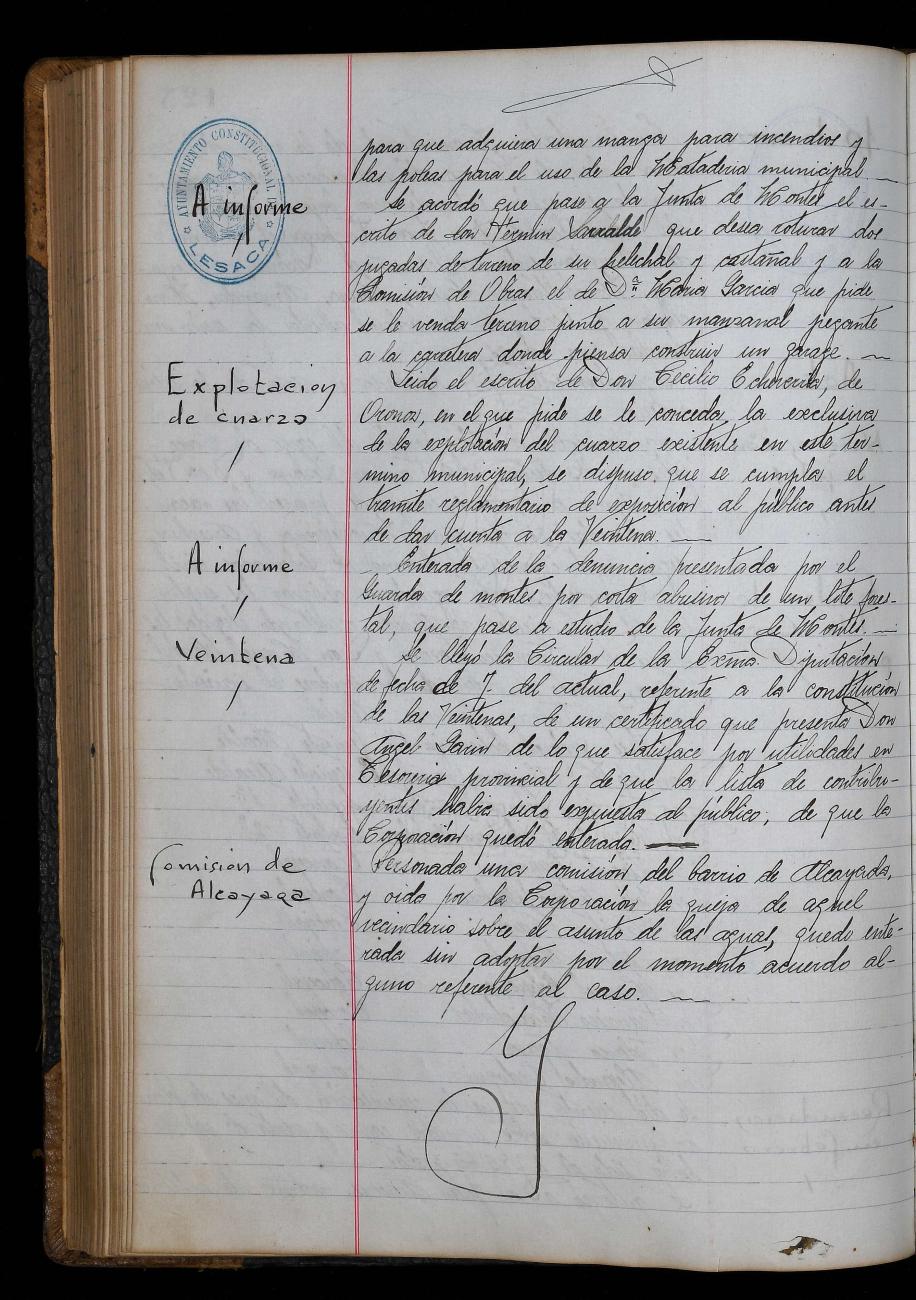 AYUNTAMIENTO CONSTITUCIONAL DE
LESACA
A informe
para que adquiera una manga para incendios y
las poleas para el uso de la Mataderia municipal.
Se acordó que pase a la Junta de Montes el es-
crito de don Fermin Sarralde que desea roturar dos
yugadas de terreno de su helechal y castañal y a la
Comisión de Obras el de Dª Maria Garcia que pide
se le venda terreno junto a su manzanal pegante
a la carretera donde piensa construir un garage.
Explotacion
de cuarzo
Leido el escrito de Don Cecilio Echeverria, de
Oronoz, en el que pide se le conceda la exclusiva
de la explotacion del cuarzo existente en este ter-
mino municipal, se dispuso que se cumpla el
tramite reglamentario de exposición al público antes
de dar cuenta a la Veintena.
A informe
Enterada de la denuncia presentada por el
Guarda de montes por corta abusiva de un lote fores-
tal, que pase a estudio de la Junta de Montes.
Veintena
Se lleyó la Circular de la Exma. Diputacion
de fecha de 7 del actual, referente a la constitución
de las Veintenas, de un certificado que presenta Don
Angel Garin de lo que satisface por utilidades en
Tesoreria provincial y de que la lista de contribu-
yentes habia sido expuesta al público, de que la
Corporación quedó enterada.
Comisión de
Alcayaga
Personada una comisión del barrio de Alcayada,
y oida por la Corporación la queja de aquel
vecindario sobre el asunto de las aguas, quedo ente-
rada sin adoptar por el momento acuerdo al-
guno referente al caso.